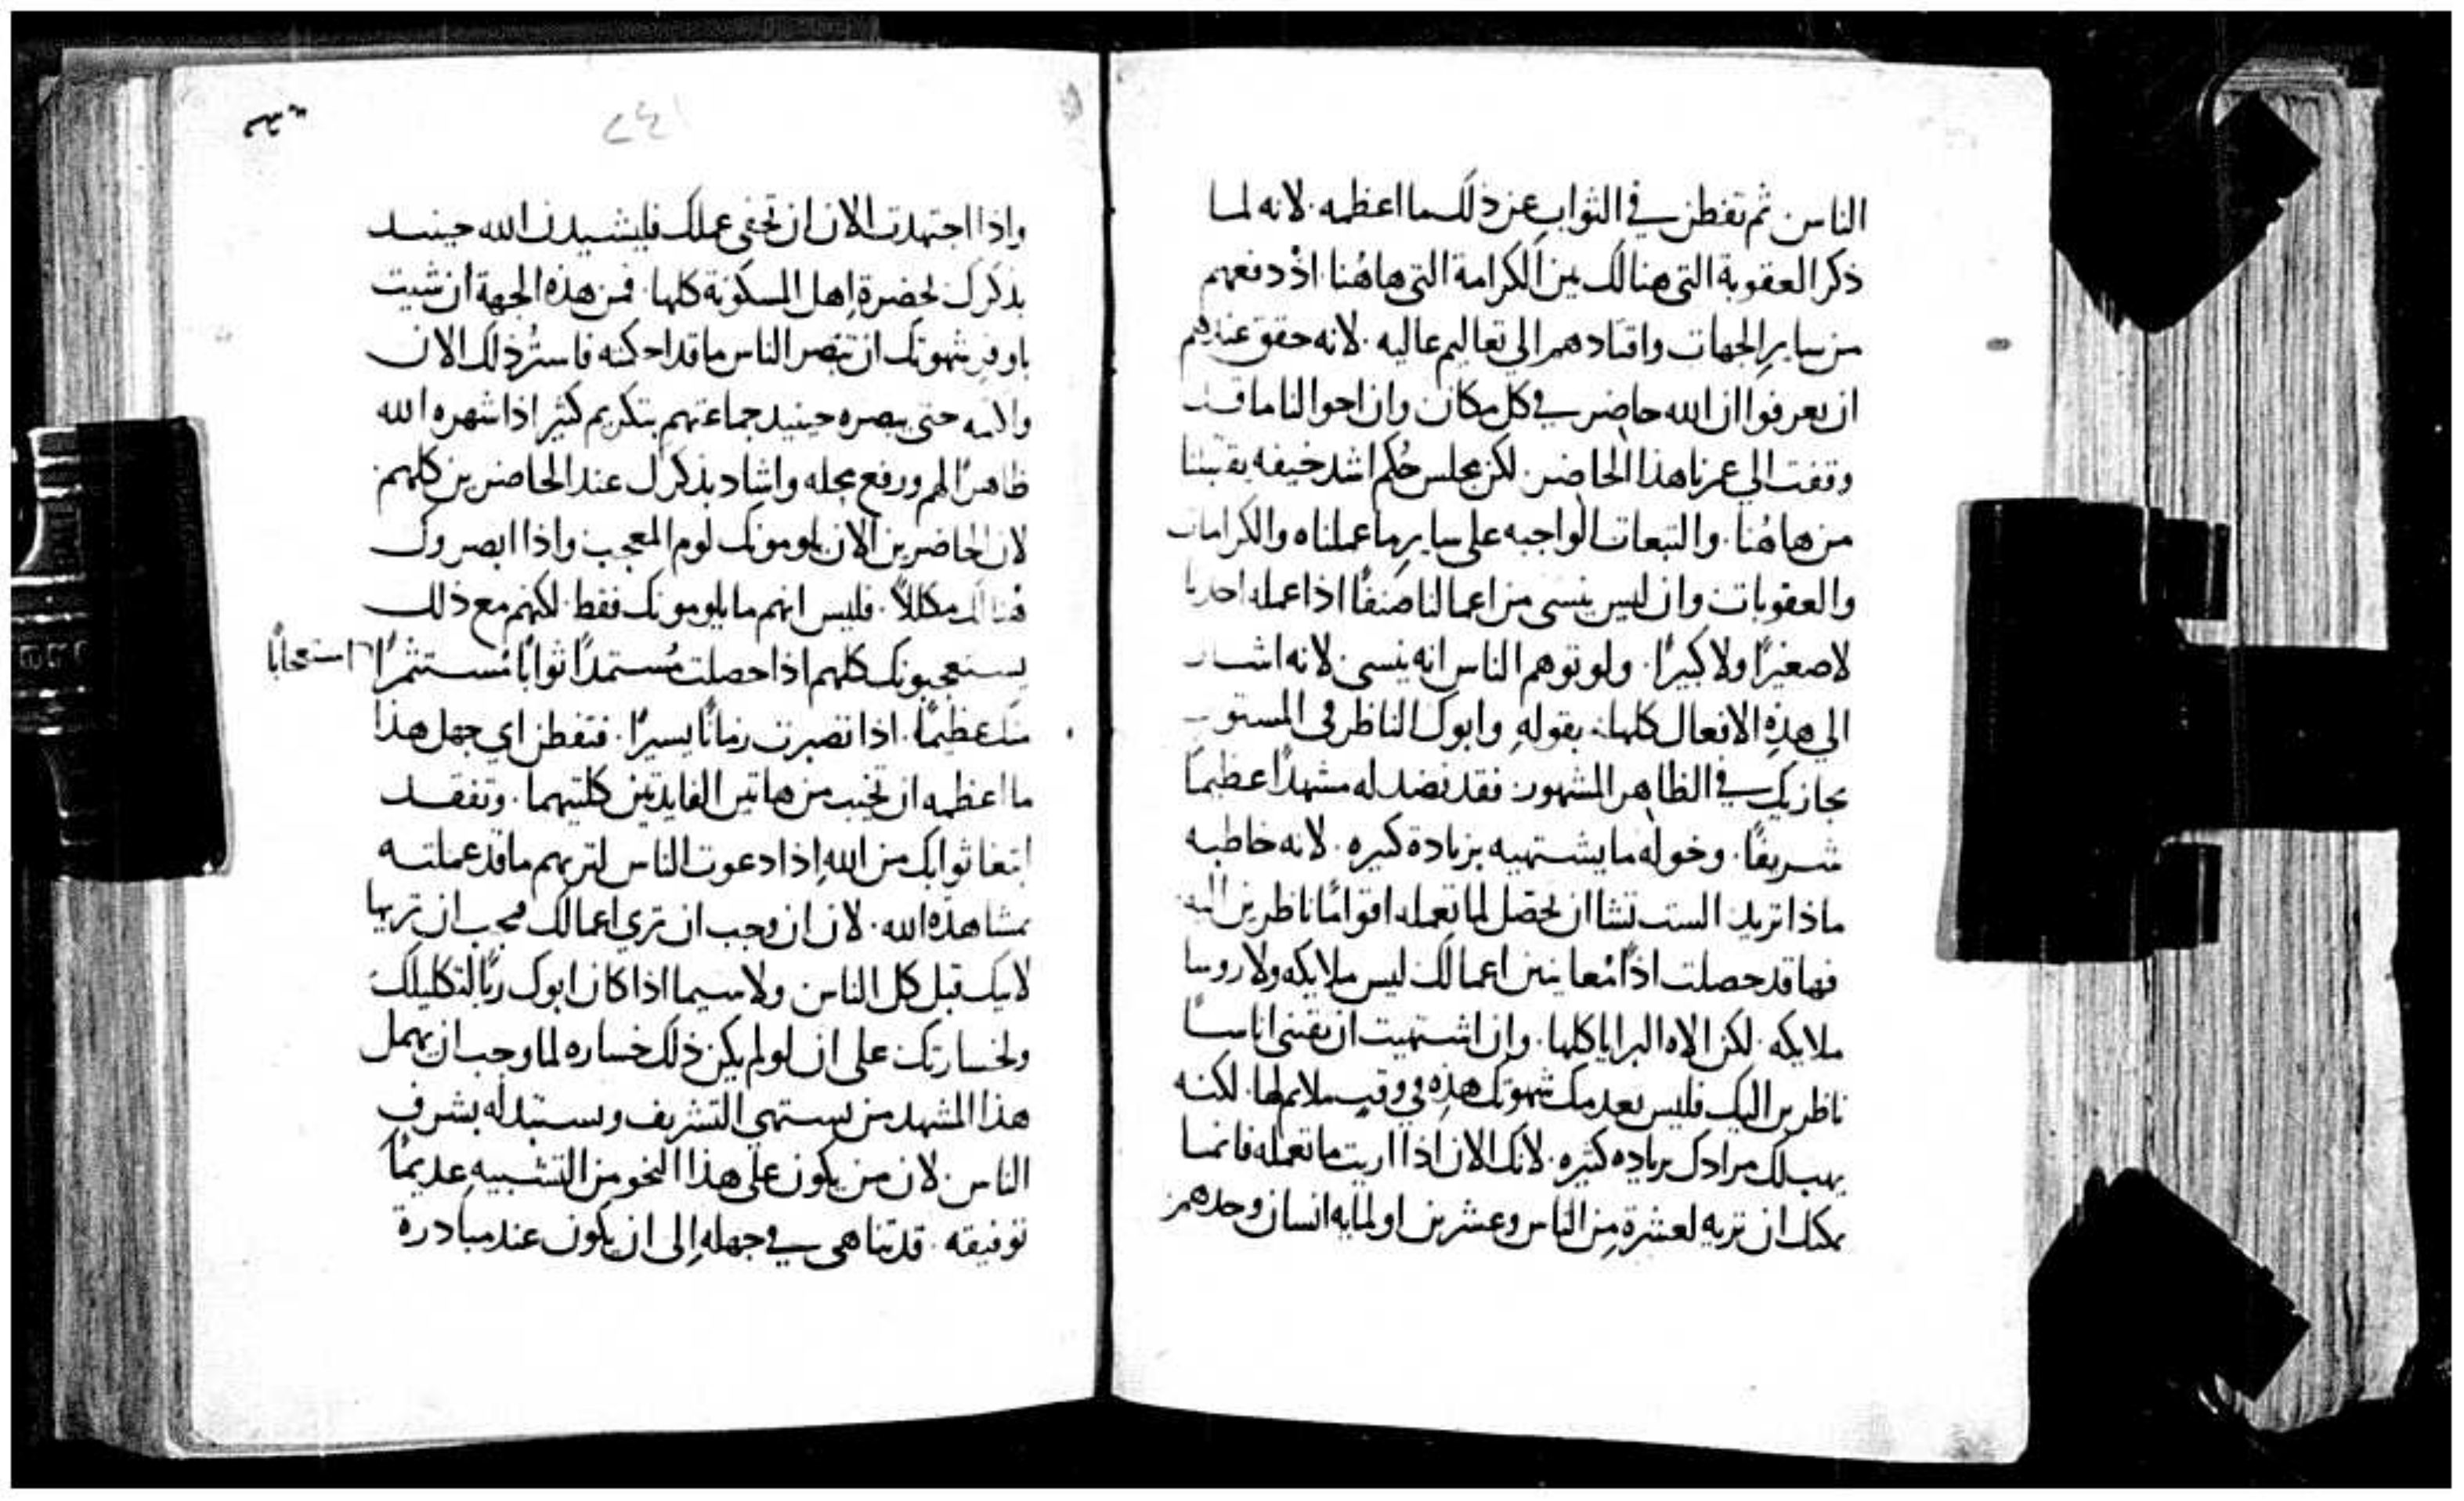 الناس. ثم تفطن في الثواب عن ذلك ما اعظمه. لانه لما
ذكر العقوبة التي هنالك من الكرامة التي هاهُنا. اذ دفعهم
من ساير الجهات واقتادهم الي تعاليم عاليه. لانه حقق عندهم
ان يعرفوا ان الله حاضر في كل مكان وان احوالنا ما قد
وقفت الي عزنا هذا الحاضر. لكن مجلس حُكم اشد خيفه يقتبلنا
من هاهُنا. والتبعات الواجبه علي ساير ما عملناه والكرامات
والعقوبات وان ليس ينسى من اعمالنا صنفًا اذا عمله احدنا
لا صغيرًا ولا كبيرًا. ولو توهم الناس انه ينسى. لانه اشار
الي هذِه الافعال كلها. بقولهِ وابوك الناظر في المستور
يجازيك في الظاهر المشهور. فقد نضد له مشهدًا عظيمًا
شريفًا. وخوله ما يشتهيه بزيادة كبيره. لانه خاطبه
ماذا تريد. الست تشا ان تحصّل لما تعمله اقوامًا ناظرين اليه.
فها قد حصلت اذًا مُعاينين اعمالك ليس ملايكه ولا روسا
ملايكه. لكن الاه البرايا كلها. وان اشتهيت ان تقتني اناسًا
ناظرين اليك فليس يعدمك شهوتك هذِه في وقتٍ ملايم لها. لكنه
يهب لك مرادك بزياده كثيره. لانك الان اذا اريت ما تعمله فانما
يمكنك ان تريه لعشرة مِن الناس وعشرين او لمايه انسان وحدهم
٢٤١
واذا اجتهدت الان ان تخفي عملك فليشيدن الله حينيد
بذكرك لحضرة اهل المسكونة كلها. فمن هذه الجهة ان شيت
باوفر شهوتك ان تبصر الناس ما قد احكمته فاستُر ذلك الان
واكتمه حتى يبصره حينيد جماعتهم بتكريم كثير اذا شهره الله
ظاهرًا لهم ورفع محله واشاد بذكرك عند الحاضرين كلهم
لان الحاضرين الان يلومونك لوم المعجب واذا ابصروك
هُنالك مكللاً. فليس انهم ما يلومونك فقط. لكنهم مع ذلك
يستعجبونك كلهم اذا حصلت مُستمدًا ثوابًا مُستثمرًا استعجابًا
منك عظيمًا. اذا تصبرت زمانًا يسيرًا. فتفطن اي جهل هذا
ما اعظمه ان تخيب من هاتين الفايدتين كلتيهما. وتفقد
ابتغا ثوابك من اللهِ اذا دعوت الناس لتريهم ما قد عملته
بمشاهدة الله. لان ان وجب ان تري اعمالك فيجب ان تريها
لابيك قبل كل الناس. ولا سيما اذا كان ابوك ربًا لتكليلك
ولخسارتك على ان لو لم يكن ذلك خساره لما وجب ان يهمل
هذا المشهد من يستهي التشريف ويستبدله بشرف
الناس. لان من يكون على هذا النحو من التشبيهِ عديمًا
توفيقه. قد تناهى في جهلهِ الى ان يكون عند مبادرة